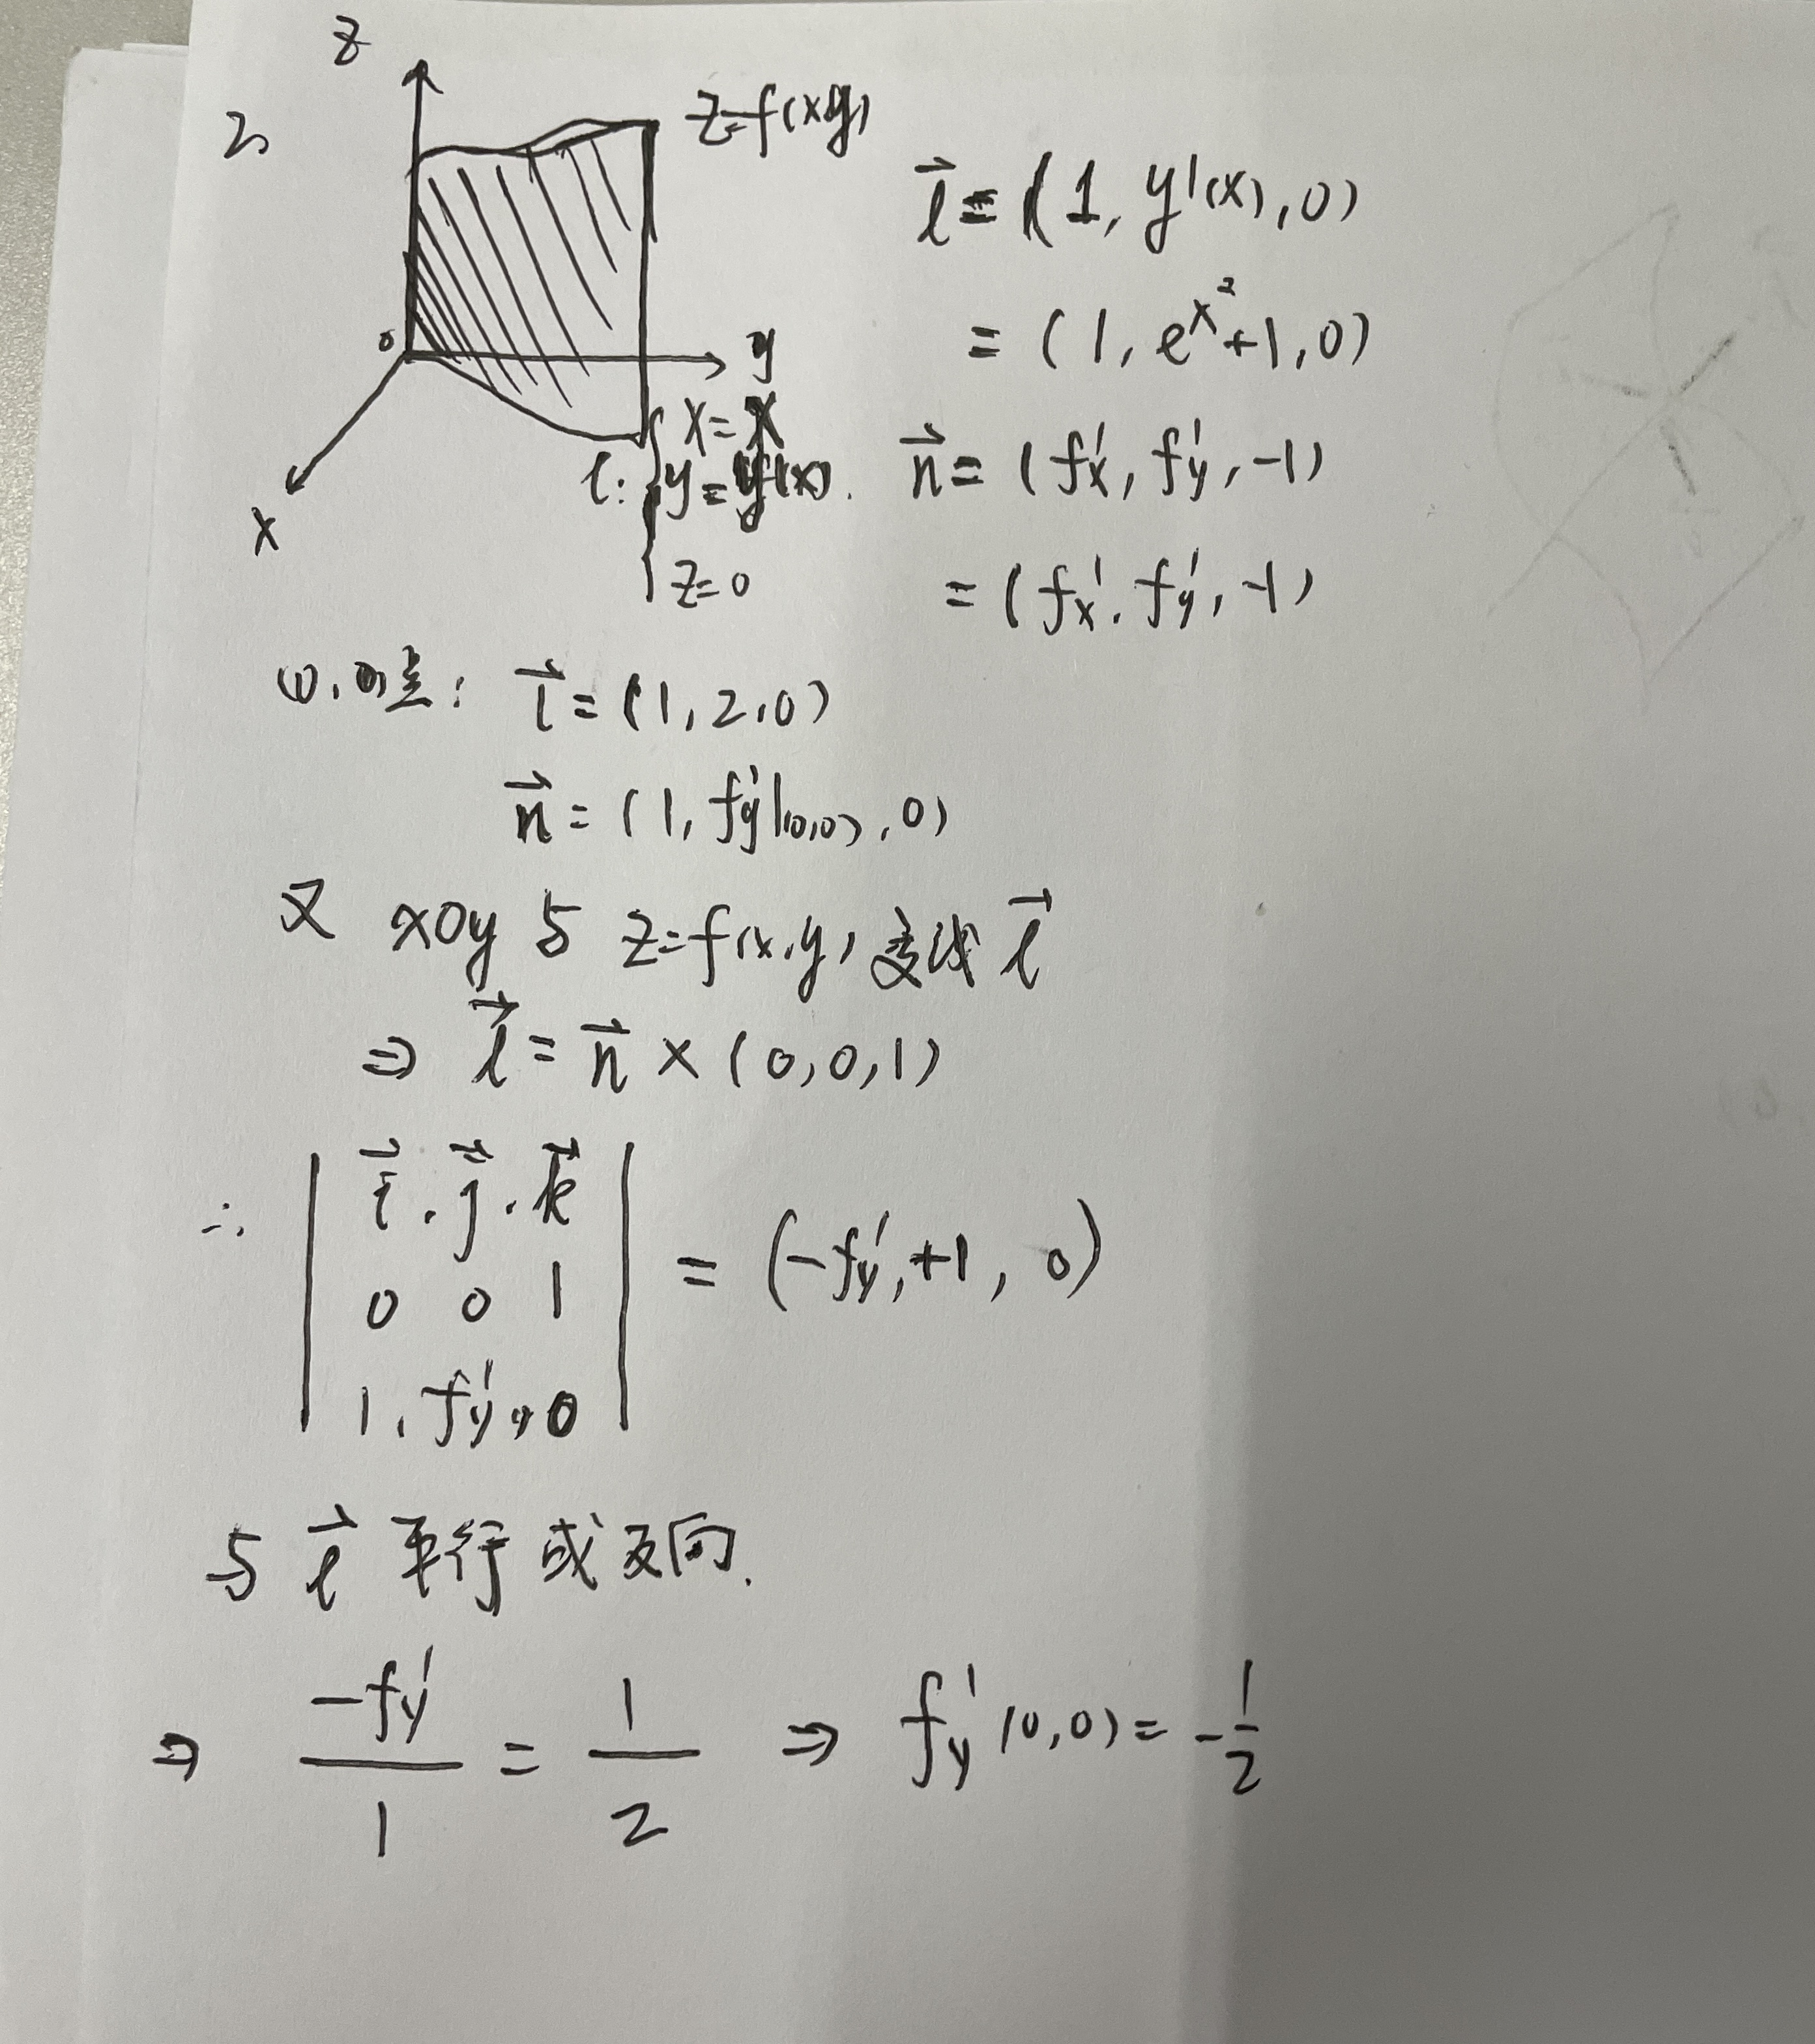 z
2、
z=f(xy)
0
y
x
l: { x=x
y=y(x).
z=0
l⃗=(1, y'(x), 0)
=(1, e^{x²}+1, 0)
n⃗=(f'x, f'y, -1)
=(f'x, f'y, -1)
(0,0)点: l⃗=(1,2,0)
n⃗=(1, f'y|(0,0), 0)
又 xoy 与 z=f(x,y) 交线 l⃗
⇒ l⃗=n⃗×(0,0,1)
∴ | i⃗, j⃗, k⃗
0 0 1
1, f'y, 0 | = (-f'y, +1, 0)
与 l⃗ 平行或反向.
⇒ -f'y/1 = 1/2 ⇒ f'y(0,0)=-1/2